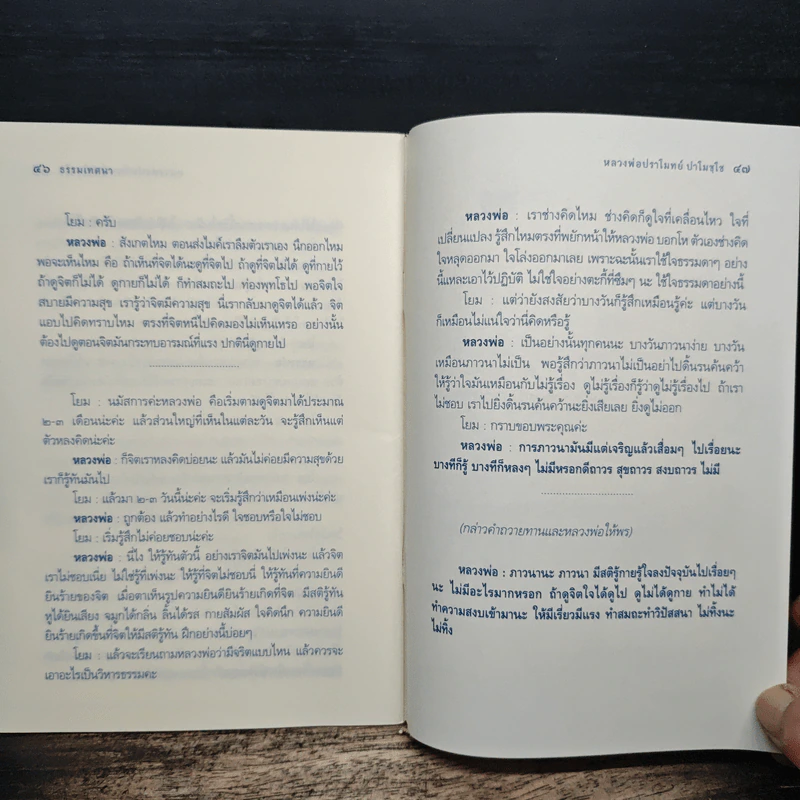 ๔๖ ธรรมเทศนา
โยม : ครับ
หลวงพ่อ : สังเกตไหม ตอนส่งไมค์เราลืมตัวเราเอง นึกออกไหม
พอจะเห็นไหม คือ ถ้าเห็นจิตได้นะดูที่จิตไป ถ้าดูที่จิตไม่ได้ ดูที่กายไว้
ถ้าดูจิตก็ไม่ได้ ดูกายก็ไม่ได้ ก็ทำสมถะไป ท่องพุทโธไป พอจิตใจ
สบายมีความสุข เรารู้ว่าจิตมีความสุข นี่เรากลับมาดูจิตได้แล้ว จิต
แอบไปคิดทราบไหม ตรงที่จิตหนีไปคิดมองไม่เห็นเหรอ อย่างนั้น
ต้องไปดูตอนจิตมันกระทบอารมณ์ที่แรง ปกตินี่ดูกายไป
โยม : นมัสการค่ะหลวงพ่อ คือเริ่มตามดูจิตมาได้ประมาณ
๒-๓ เดือนน่ะค่ะ แล้วส่วนใหญ่ที่เห็นในแต่ละวัน จะรู้สึกเห็นแต่
ตัวหลงคิดน่ะค่ะ
หลวงพ่อ : ก็จิตเราหลงคิดบ่อยนะ แล้วมันไม่ค่อยมีความสุขด้วย
เราก็รู้ทันมันไป
โยม : แล้วมา ๒-๓ วันนี้น่ะค่ะ จะเริ่มรู้สึกว่าเหมือนเพ่งน่ะค่ะ
หลวงพ่อ : ถูกต้อง แล้วทำอย่างไรดี ใจชอบหรือใจไม่ชอบ
โยม : เริ่มรู้สึกไม่ค่อยชอบน่ะค่ะ
หลวงพ่อ : นี่ไง ให้รู้ทันตัวนี้ อย่างเราจิตมันไปเพ่งนะ แล้วจิต
เราไม่ชอบเนี่ย ไม่ใช่รู้ที่เพ่งนะ ให้รู้ที่จิตไม่ชอบนี่ ให้รู้ทันที่ความยินดี
ยินร้ายของจิต เมื่อตาเห็นรูปความยินดียินร้ายเกิดที่จิต มีสติรู้ทัน
หูได้ยินเสียง จมูกได้กลิ่น ลิ้นได้รส กายสัมผัส ใจคิดนึก ความยินดี
ยินร้ายเกิดขึ้นที่จิตให้มีสติรู้ทัน ฝึกอย่างนี้บ่อยๆ
โยม : แล้วจะเรียนถามหลวงพ่อว่ามีจริตแบบไหน แล้วควรจะ
เอาอะไรเป็นวิหารธรรมคะ
หลวงพ่อปราโมทย์ ปาโมชฺโช ๔๗
หลวงพ่อ : เราช่างคิดไหม ช่างคิดก็ดูใจที่เคลื่อนไหว ใจที่
เปลี่ยนแปลง รู้สึกไหมตรงที่พยักหน้าให้หลวงพ่อ บอกโห ตัวเองช่างคิด
ใจหลุดออกมา ใจโล่งออกมาเลย เพราะฉะนั้นเราใช้ใจธรรมดาๆ อย่าง
นี้แหละเอาไว้ปฏิบัติ ไม่ใช้ใจอย่างตะกี้ที่ซึมๆ นะ ใช้ใจธรรมดาอย่างนี้
โยม : แต่ว่ายังสงสัยว่าบางวันก็รู้สึกเหมือนรู้ค่ะ แต่บางวัน
ก็เหมือนไม่แน่ใจว่านี่คิดหรือรู้
หลวงพ่อ : เป็นอย่างนั้นทุกคนนะ บางวันภาวนาง่าย บางวัน
เหมือนภาวนาไม่เป็น พอรู้สึกว่าภาวนาไม่เป็นอย่าไปดิ้นรนค้นคว้า
ให้รู้ว่าใจมันเหมือนกับไม่รู้เรื่อง ดูไม่รู้เรื่องก็รู้ว่าดูไม่รู้เรื่องไป ถ้าเรา
ไม่ชอบ เราไปยิ่งดิ้นรนค้นคว้านะยิ่งเสียเลย ยิ่งดูไม่ออก
โยม : กราบขอบพระคุณค่ะ
หลวงพ่อ : การภาวนามันมีแต่เจริญแล้วเสื่อมๆ ไปเรื่อยนะ
บางทีก็รู้ บางทีก็หลงๆ ไม่มีหรอกดีถาวร สุขถาวร สงบถาวร ไม่มี
(กล่าวคำถวายทานและหลวงพ่อให้พร)
หลวงพ่อ : ภาวนานะ ภาวนา มีสติรู้กายรู้ใจลงปัจจุบันไปเรื่อยๆ
นะ ไม่มีอะไรมากหรอก ถ้าดูจิตใจได้ดูไป ดูไม่ได้ดูกาย ทำไม่ได้
ทำความสงบเข้ามานะ ให้มีเรี่ยวมีแรง ทำสมถะทำวิปัสสนา ไม่ทิ้งนะ
ไม่ทิ้ง